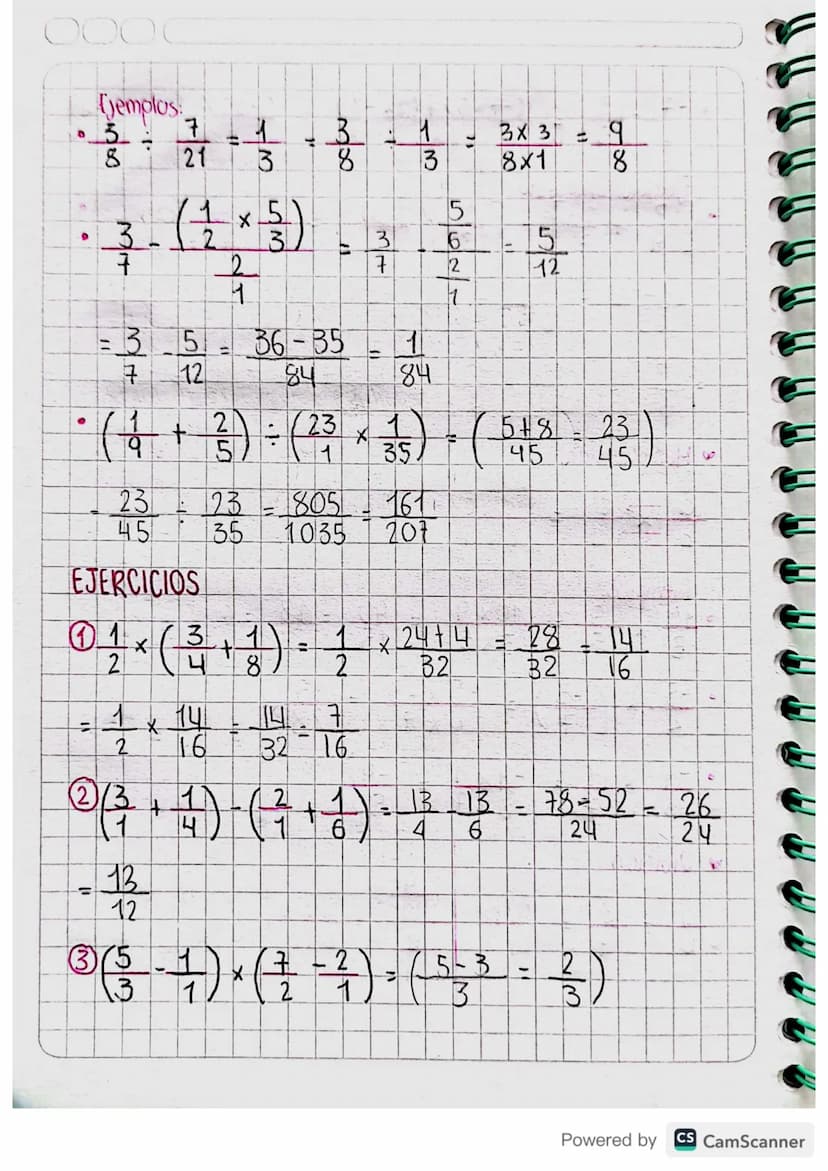 Ejemplos:
• 3/8 ÷ 7/21 = 1/3 = 3/8 ÷ 1/3 = 3x3/8x1 = 9/8
• 3/7 - (1/2 x 5/3)/(2/1) = 3/7 - (5/6)/(2/1) = 5/12
= 3/7 - 5/12 = 36-35/84 = 1/84
• (1/9 + 2/5) ÷ (23/1 x 1/35) = (5+8/45 = 23/45)
= 23/45 ÷ 23/35 = 805/1035 = 161/207
EJERCICIOS
① 1/2 x (3/4 + 1/8) = 1/2 x 24+4/32 = 28/32 = 14/16
= 1/2 x 14/16 = 14/32 = 7/16
② (3/1 + 1/4) - (2/1 + 1/6) = 13/4 - 13/6 = 78-52/24 = 26/24
= 13/12
③ (5/3 - 1/1) x (7/2 - 2/1) = (5-3/3 = 2/3)
Powered by CS CamScanner